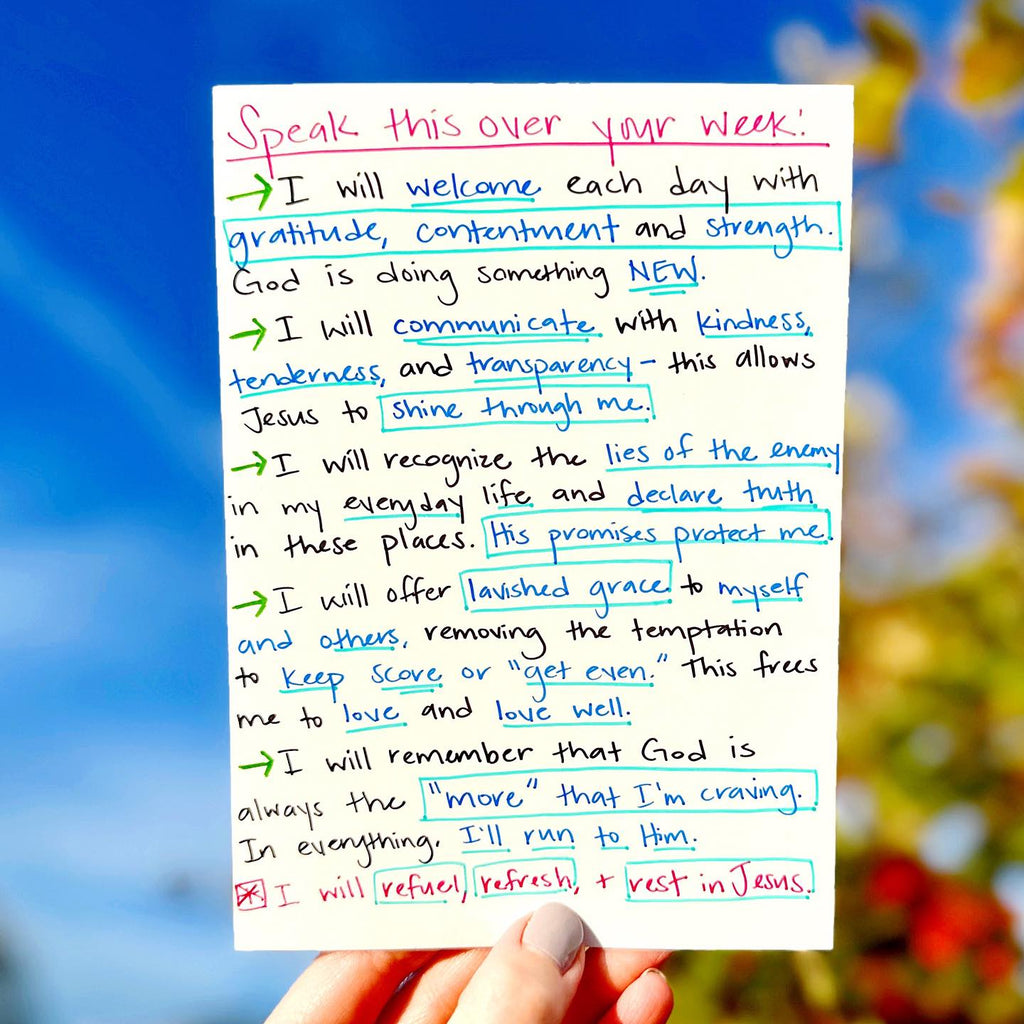 Speak this over your week:
→ I will welcome each day with
gratitude, contentment and strength.
God is doing something NEW.
→ I will communicate with kindness,
tenderness, and transparency – this allows
Jesus to shine through me.
→ I will recognize the lies of the enemy
in my everyday life and declare truth
in these places. His promises protect me.
→ I will offer lavished grace to myself
and others, removing the temptation
to keep score or "get even." This frees
me to love and love well.
→ I will remember that God is
always the "more" that I'm craving.
In everything, I'll run to Him.
I will refuel, refresh, + rest in Jesus.